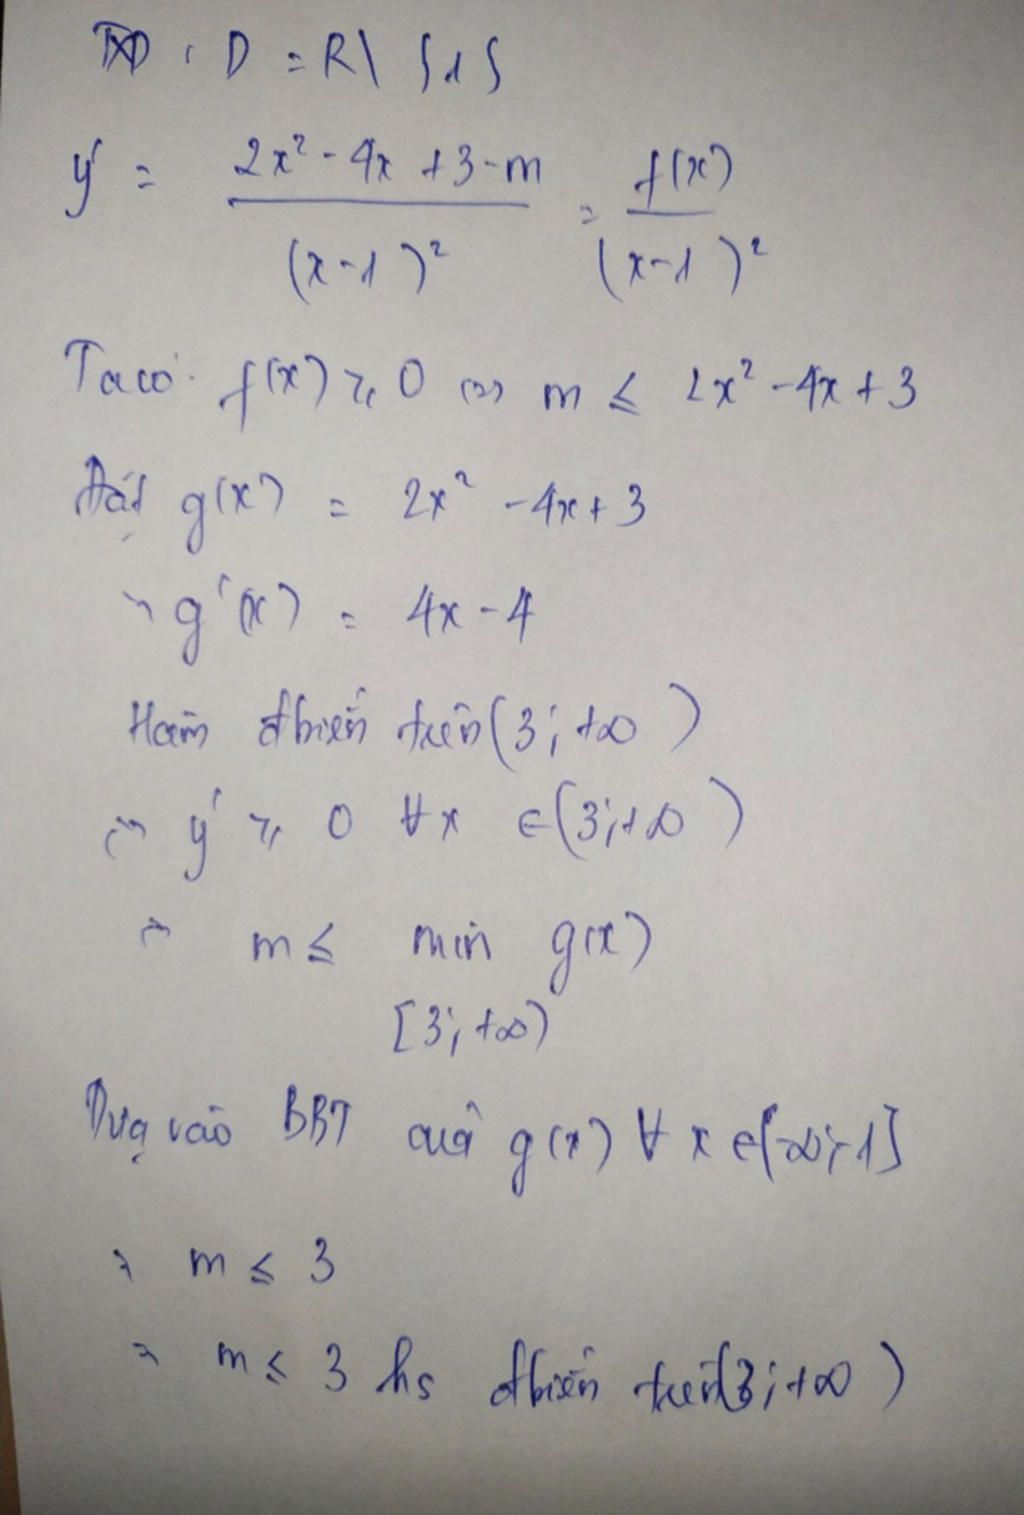 TXĐ : D = R \ {1}
y' = \frac{2x² - 4x + 3 - m}{(x-1)²} = \frac{f(x)}{(x-1)²}
Ta có f(x) ≥ 0 <=> m ≤ 2x² - 4x + 3
Đặt g(x) = 2x² - 4x + 3
=> g'(x) = 4x - 4
Hàm đbiến trên (3; +∞)
<=> y' ≥ 0 ∀x ∈ (3; +∞)
<=> m ≤ min g(x)
[3; +∞)
Dựa vào BBT của g(x) ∀x ∈ (-∞; -1]
=> m ≤ 3
=> m ≤ 3 hs đbiến trên (3; +∞)